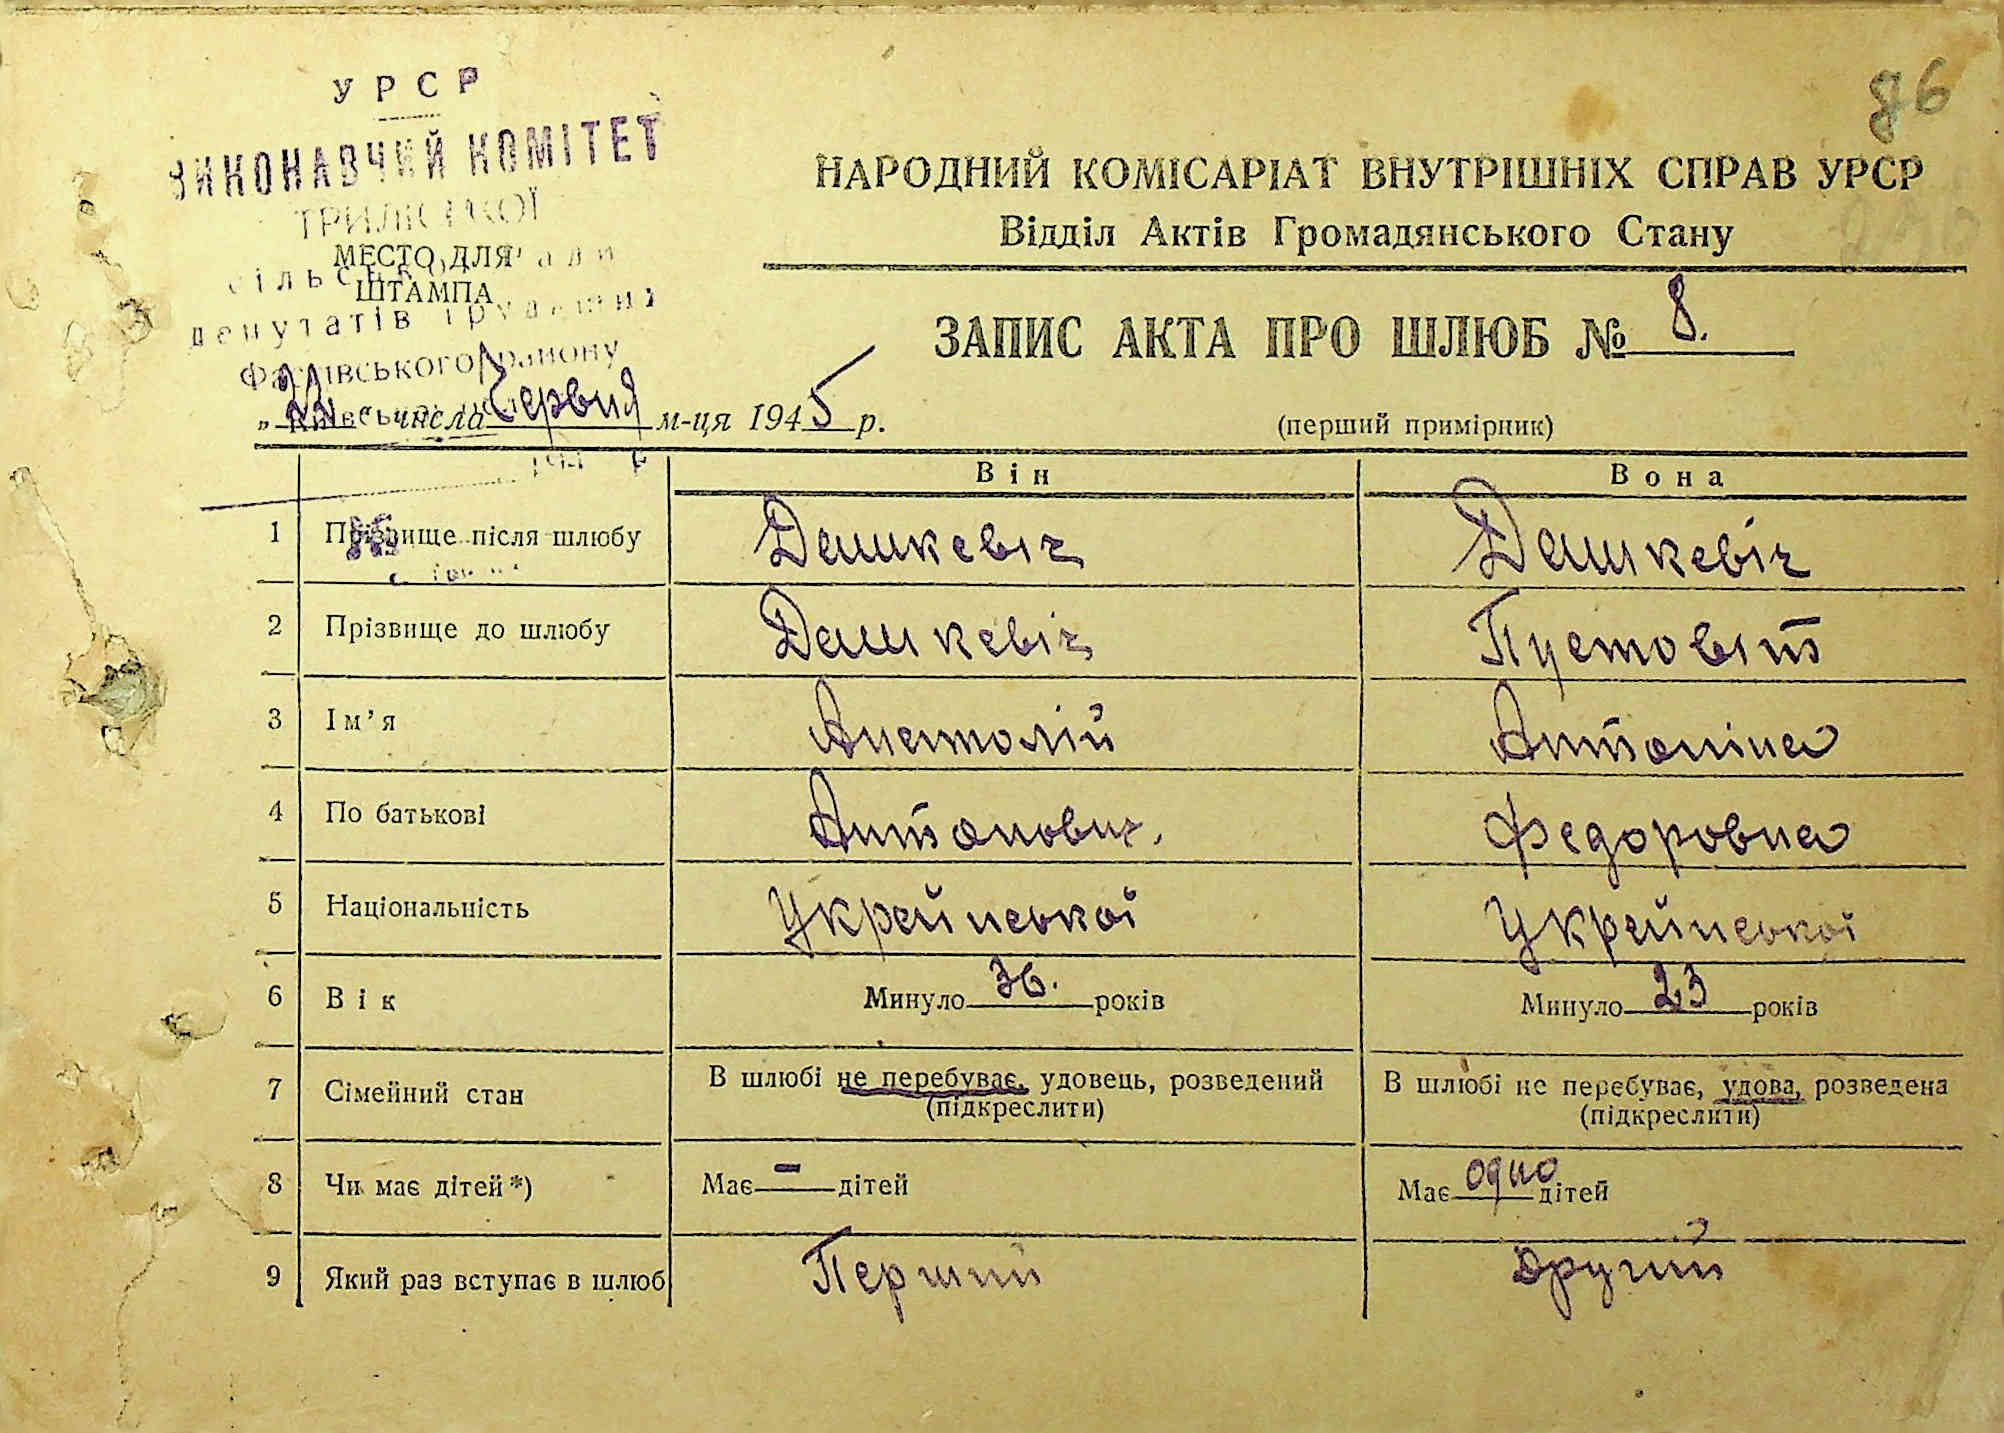 86
УРСР
ВИКОНАВЧИЙ КОМІТЕТ
ТРИЛІСЬКОЇ
МЕСТО ДЛЯ
ШТАМПА
сільської ради
депутатів трудящих
Фастівського району
НАРОДНИЙ КОМІСАРІАТ ВНУТРІШНІХ СПРАВ УРСР
Відділ Актів Громадянського Стану
ЗАПИС АКТА ПРО ШЛЮБ № 8.
числа Червня м-ця 1945 р.
(перший примірник)
Він Вона
1 Прізвище після шлюбу Дашкевіч Дашкевіч
2 Прізвище до шлюбу Дашкевіч Пустовіт
3 Ім’я Анатолій Антоніна
4 По батькові Антонович. Федоровна
5 Національність Украйнської Украйнської
6 Вік Минуло 36. років Минуло 23 років
7 Сімейний стан В шлюбі не перебуває, удовець, розведений В шлюбі не перебуває, удова, розведена
(підкреслити) (підкреслити)
8 Чи має дітей *) Має - дітей Має одно дітей
9 Який раз вступає в шлюб Перший Другий